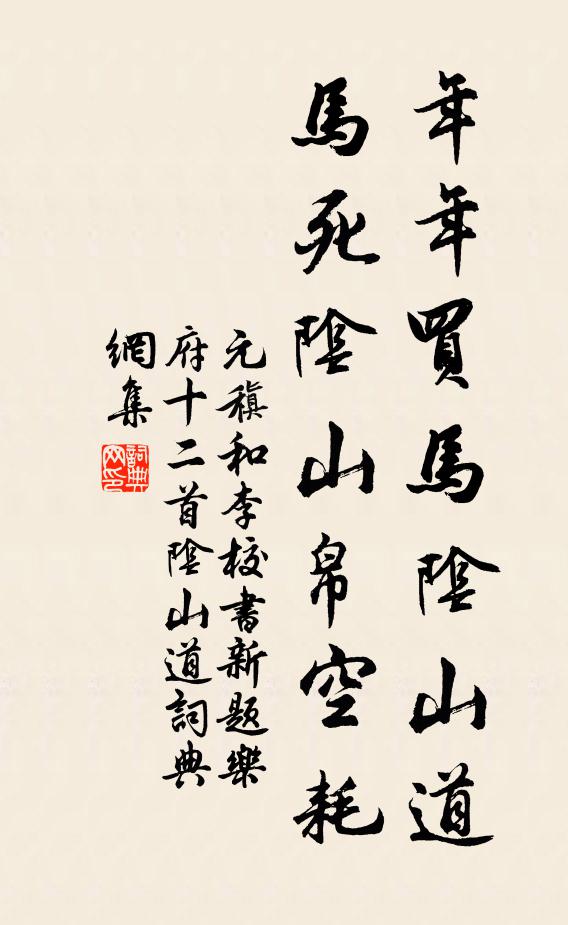 年年買馬陰山道
馬死陰山帛空耗
元稹和李校書新題樂
府十二首陰山道詞典
網集
詞典
网印